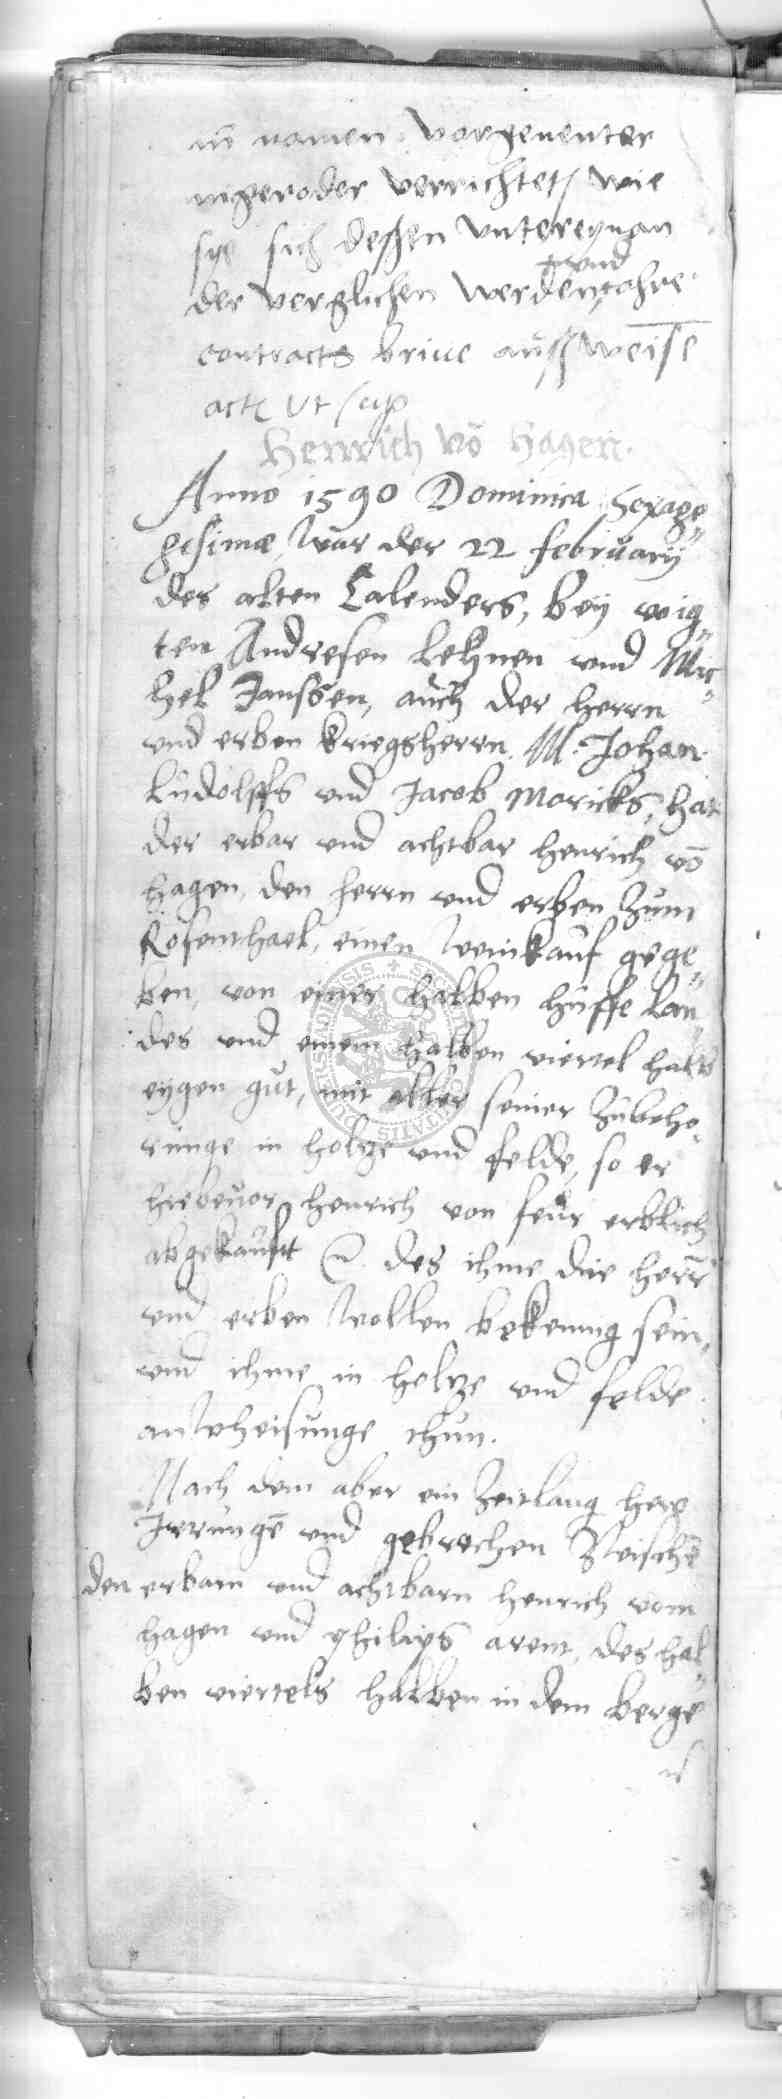 in namen vorgenenter
ingeroder verrichtet, wie
sye sich dessen untereynan
und
der verglichen werden, ohre
contracts brive aussweise
act ut sup
Henrich vō Hagen.
Anno 1590 Dominica Sexage„
gesimæ, war der 22 february
des alten Calenders, bey wig„
ten Andresen Lehnen und Mic„
hel Janssen, auch der herrn
und erben kriegsherrn M. Johan
Ludolffs und Jacob Moricks, hat
der erbar und achtbar henrich vō
hagen, den herrn und erben zum
Rosenthael, einen weinkauf gege„
ben, von einer halben huffe lan„
des und einem halben viertel halb
eygen gut, mit aller seiner zubeho„
runge in holtze und felde, so er
hiebevor henrich von feur erblich
abgekaufft des ihme die herrn
und erben wollen bekennig sein,
und ihme in holtze und felde
anwheisunge thun.
Nach dem aber ein zeitlang hero
Irrungē und gebrechen zwischē
den erbarn und achtbarn henrich vom
hagen und philips arent, des hal„
ben viertels halben in dem berge